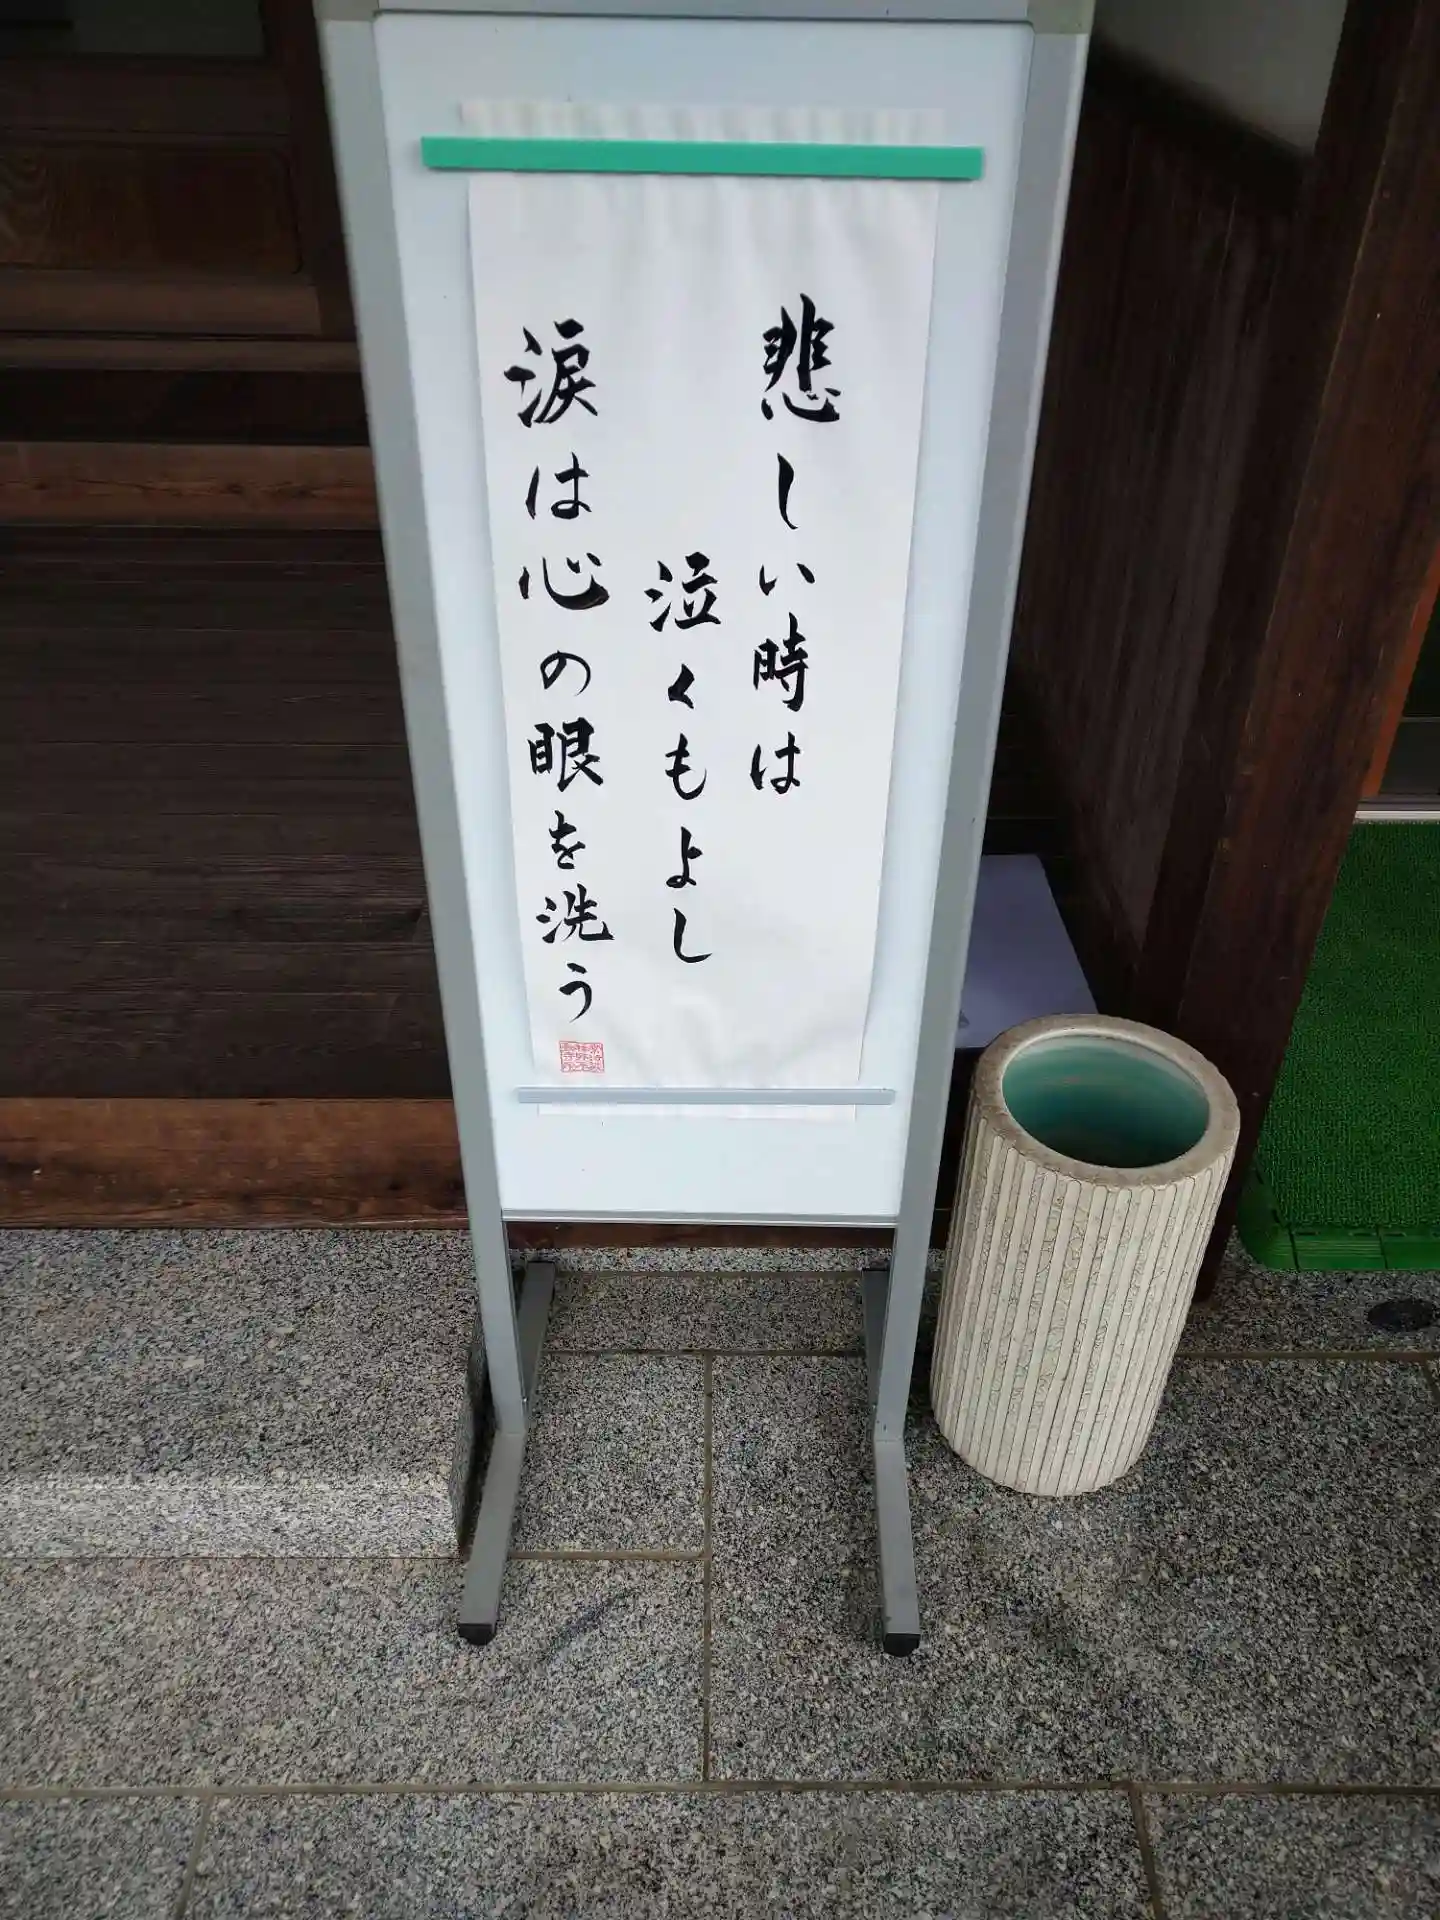 悲しい時は
泣くもよし
涙は心の眼を洗う